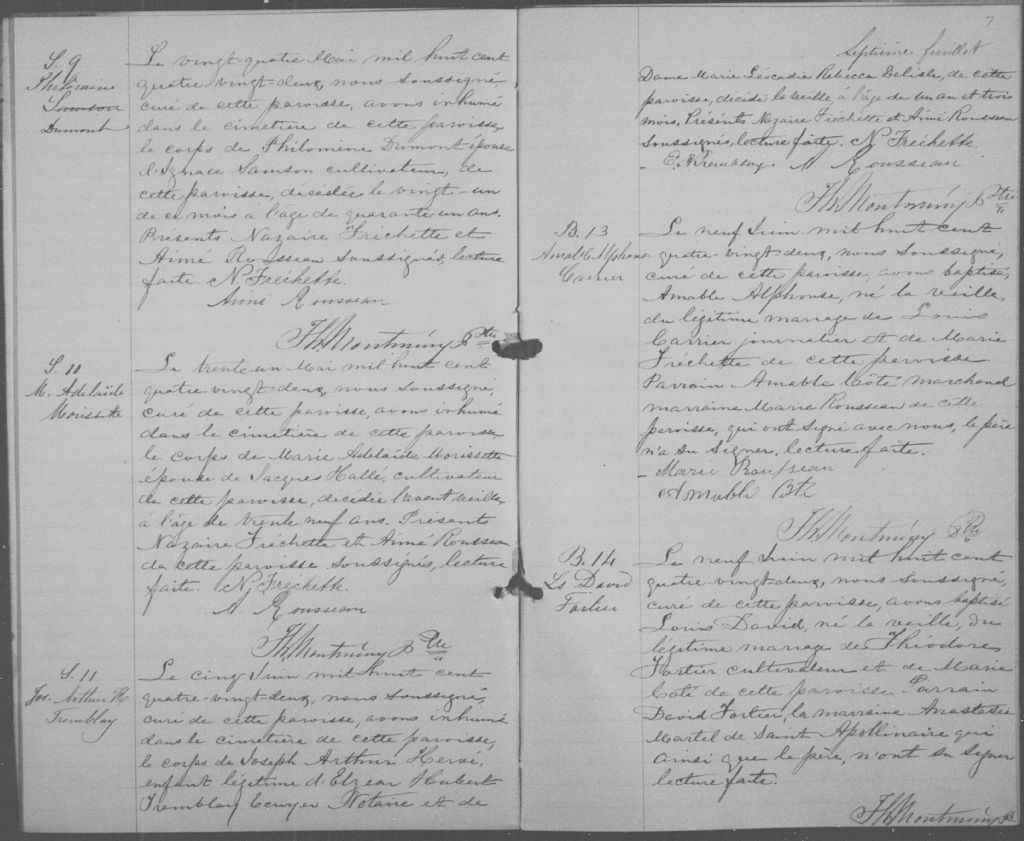 S. 9
Philomène
Samson
Dumont
Le vingt-quatre Mai mil huit cent
quatre-vingt-deux, nous soussigné,
curé de cette paroisse, avons inhumé
dans le cimetière de cette paroisse,
le corps de Philomène Dumont épouse
d'Ignace Samson cultivateur, de
cette paroisse, décédée le vingt-un
de ce mois à l'âge de quarante un ans.
Présents Nazaire Fréchette et
Aimé Rousseau soussignés, lecture
faite. N. Frechette.
Aimé Rousseau
Th. Montminy Ptre
S. 10
M. Adelaïde
Morissette
Le trente un Mai mil huit cent
quatre-vingt-deux, nous soussigné,
curé de cette paroisse, avons inhumé
dans le cimetière de cette paroisse
le corps de Marie Adelaïde Morissette
épouse de Jacques Hallé, cultivateur
de cette paroisse, décédée l'avant veille,
à l'âge de trente neuf ans. Présents
Nazaire Fréchette et Aimé Rousseau
de cette paroisse soussignés, lecture
faite. N. Frechette.
A Rousseau
Th. Montminy Ptre
S. 11
Jos. Arthur H.
Tremblay
Le cinq Juin mil huit cent
quatre-vingt-deux, nous soussigné,
curé de cette paroisse, avons inhumé
dans le cimetière de cette paroisse,
le corps de Joseph Arthur Hervé,
enfant légitime d'Elzear Hubert
Tremblay Ecuyer Notaire et de
7
Septième feuillet
Dame Marie Léocadie Rebecca Delisle, de cette
paroisse, décédé la veille, à l'âge de un an et trois
mois. Présents Nazaire Fréchette et Aimé Rousseau
soussignés, lecture faite. N. Frechette
E. H. Tremblay. A Rousseau
Th. Montminy Ptre
B. 13
Amable Alphonse
Carrier
Le neuf Juin mil huit cent
quatre-vingt-deux, nous soussigné,
curé de cette paroisse, avons baptisé
Amable Alphonse, né la veille,
du légitime mariage de Louis
Carrier journalier et de Marie
Fréchette de cette paroisse.
Parrain Amable Côté marchand
marraine Marie Rousseau de cette
paroisse, qui ont signé avec nous, le père
n'a su signer, lecture faite.
Marie Rousseau
Amable Côté
Th. Montminy Ptre
B. 14
Ls David
Fortier
Le neuf Juin mil huit cent
quatre-vingt-deux, nous soussigné,
curé de cette paroisse, avons baptisé
Louis David, né la veille, du
légitime mariage de Théodore
Fortier cultivateur et de Marie
Coté de cette paroisse. Parrain
David Fortier, la marraine Anastasie
Martel de Saint Apollinaire qui
ainsi que le père, n'ont su signer
lecture faite.
Th. Montminy Ptre